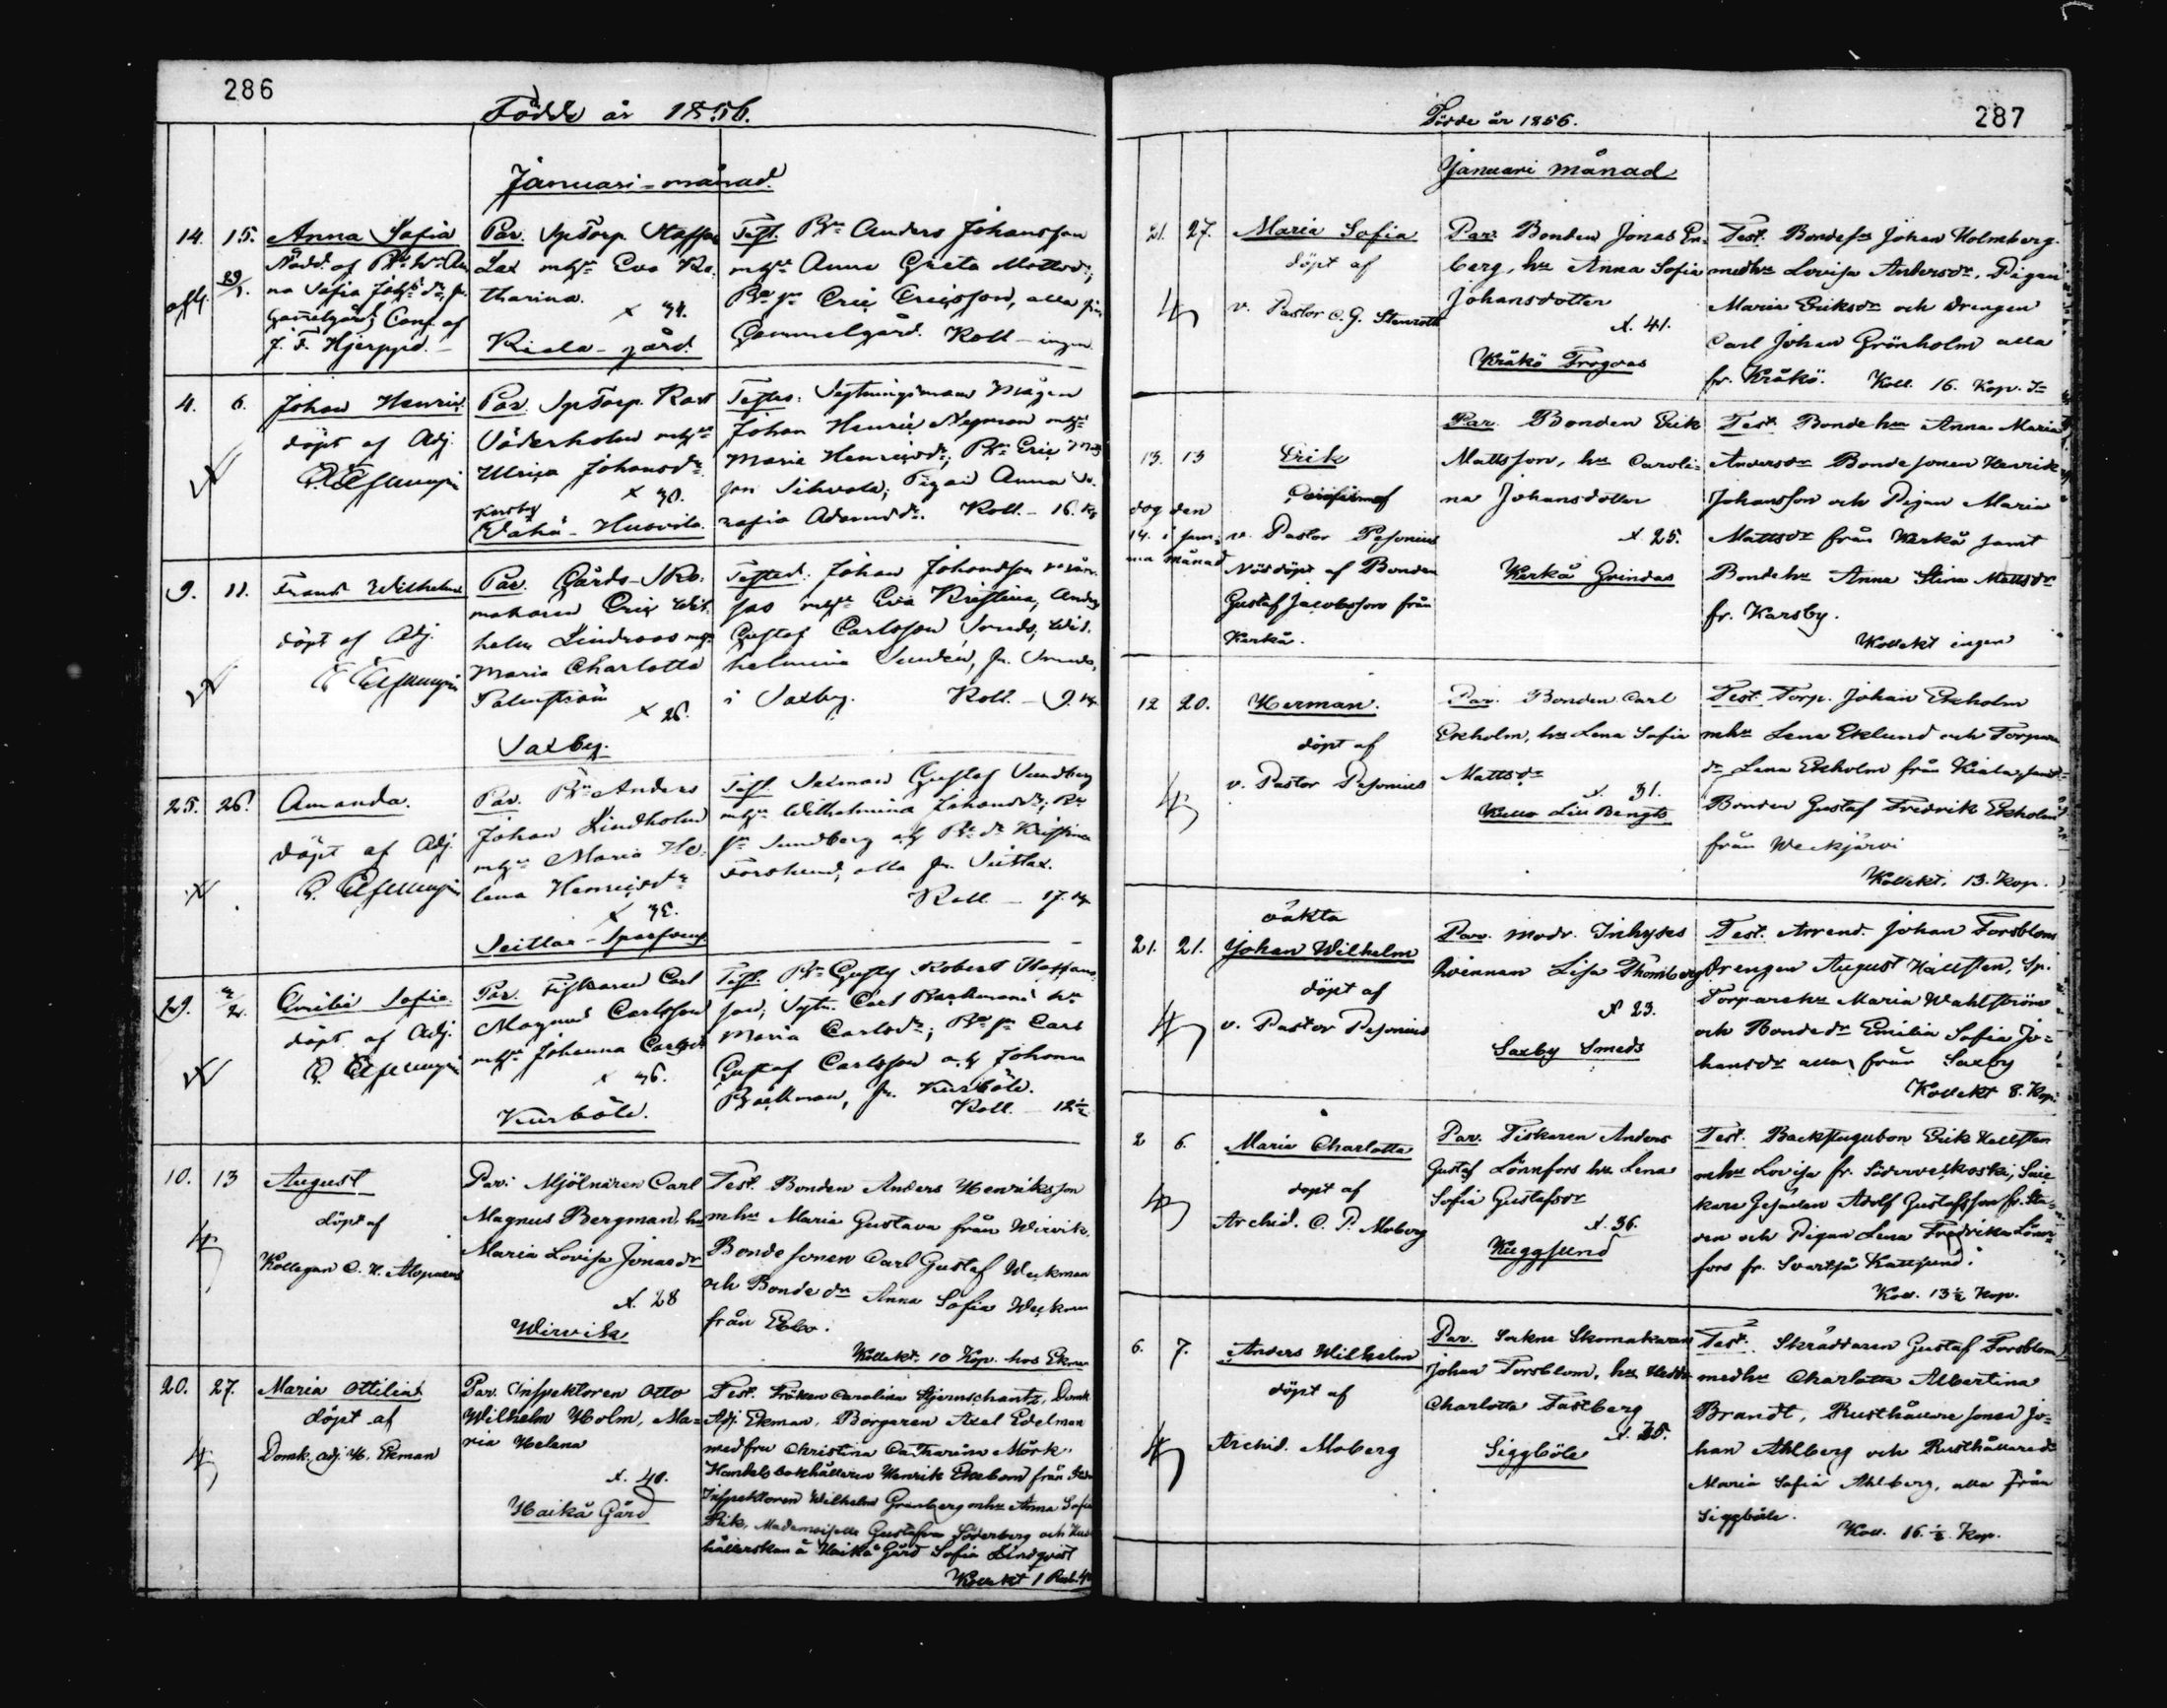 286
Födde år 1856.
Januari-månad.
14. 15. Anna Sofia
Nödd. af
na Sofia
Gammelgård; Conf. af
J. F. Hjerppe.
Par. SpTorp. Staffan
Lax mhu Eva Ka-
tharina.
x 34.
Kiala-gård.
Test. Bn Anders Johansson
mhu Anna Greta Mattsdr;
Bn sn Eric Ericsson, alla från
Gammelgård. Koll - ingen
4. 6. Johan Henric
döpt af Adj.
Par. SpTorp. Karl
Söderholm mhu
Ulrica Johansdr
x 30.
Karsby
Wähä-Husvila.
Testes: Sytningsman Mågen
Johan Henric Nyman mhu
Maria Henricsdr; Bn Eric
son Sihvola; Pigan Anna
Adamsdr. Koll. - 16. Kp
9. 11. Frans Wilhelm
döpt af Adj.
Par. Gårds-Sko-
makaren Eric Wil-
helm Lindroos mhu
Maria Charlotta
Palmström
x 26.
Saxby.
Johan Johansson
mhu Eva Kristina,
Gustaf Carlsson Smeds, Wil-
helmina Sundén, fr. Smeds,
i Saxby. Koll. - 9. Kp
25. 26. Amanda.
döpt af Adj.
Par. Bn Anders
Johan Lindholm
mhu Maria He-
lena Henricsdr
x 32.
Test. Gustaf Sundberg
mhu Wilhelmina Johansdr; Bn
sn Sundberg och Bn dr Kristina
Forslund, alla fr. Seitlax.
Koll. - 17. Kp
29. Emilia Sofia.
döpt af Adj.
Par. Fiskaren Carl
Magnus Carlsson
mhu Johanna Carlsdr
x 36.
Kurböle.
Test. Bn Gustaf Robert Staffans-
son, Sytn. Carl Backmans hu
Maria Carlsdr; Bn sn Carl
Gustaf Carlsson och Johanna
Backman, fr. Kurböle.
Koll. - 12½
10. 13 August
döpt af
Kollegan C. H. Alopaeus
Par: Mjölnären Carl
Magnus Bergman, hu
Maria Lovisa Jonasdr
x. 28
Wirvik
Test. Bonden Anders Henriksson
mhu Maria Gustava från Wirvik,
Bonde sonen Carl Gustaf Weckman
och Bonde dn Anna Sofia Weckman
från Ebbo.
Kollekt. 10 Kop. hos Ekman
20. 27. Maria Ottilia
döpt af
Domk. adj. H. Ekman
Par. Inspektoren Otto
Wilhelm Holm, Ma-
ria Helena
x. 40.
Haikå Gård
Test. Fröken Carolina Stjernschantz, Domk
Adj. Ekman, Borgaren Axel Edelman
med fru Christina Catharina Mörk.
Handels bokhållaren Henrik Ekebom från
Inspektoren Wilhelm Granberg mhu Anna Sofia
Mademoiselle Gustafva Söderberg och Hus-
hållerskan å Haikå Gård Sofia Lindqvist
Kollekt 1 Rub.
287
Födde år 1856.
Januari månad
21. 27. Maria Sofia
döpt af
v. Pastor C. G. Stenroth
Par: Bonden Jonas En-
berg, hu Anna Sofia
Johansdotter
x. 41.
Kråkö Frogas
Test: Bondesn Johan Holmberg
medhu Lovisa Andersdr, Pigan
Maria Eriksdr och Drengen
Carl Johan Grönholm alla
fr. Kråkö. Koll. 16. Kop. Sr
13. 13 Erik
dog den
14. i sam-
ma månad
v. Pastor Pesonius
Nöddöpt af Bonden
Gustaf Jacobsson från
Kerkå.
Par. Bonden Erik
Mattsson, hu Caroli-
na Johansdotter
x 25.
Kerkå Grindas
Test. Bonde hu Anna Maria
Andersdr Bondesonen Henrik
Johansson och Pigan Maria
Mattsdr från Kerkå samt
Bonde hu Anna Stina Mattsdr
fr. Karsby.
Kollekt ingen
12 20. Herman.
döpt af
v. Pastor Pesonius
Par. Bonden Carl
Ekholm, hu Lena Sofia
Mattsdr
x. 31.
Kullo Lill Bengts
Test. Torp. Johan Ekholm
mhu Lena Eklund och Torpare
dr Lena Ekholm från Kiala, samt
Bonden Gustaf Fredrik Ekholm
från Weckjärvi
Kollekt. 13. Kop.
oäkta
21. 21. Johan Wilhelm
döpt af
v. Pastor Pesonius
Par. Modr. Inhyses
Qvinnan Lisa Thomberg
x 23.
Saxby Smeds
Test. Arrend. Johan Forsblom
Drengen August Hällsten, Sp.
Torpare hu Maria Wahlström
och Bonde dr Emilia Sofia Jo-
hansdr alla från Saxby
Kollekt 8. Kop.
2 6. Maria Charlotta
döpt af
Archid. C. P. Moberg
Par. Fiskaren Anders
Gustaf Lönnfors hu Lena
Sofia Gustafsdr
x. 36.
Kuggsund
Test. Backstugubon Erik Hellsten
mhu Lovisa fr. Söderveckoski, Snic-
kare Gesällen Adolf Gustafsson fr. Sta-
den och Pigan Lena Fredrika Lönn-
fors fr. Svartså Kattsund.
Koll. 13½ Kop.
6. 7. Anders Wilhelm
döpt af
Archid. Moberg
Par. Sockne Skomakaren
Johan Forsblom, hu Hedda
Charlotta Fastberg
x. 35.
Siggböle
Test. Skräddaren Gustaf Forsblom
medhu Charlotta Albertina
Brandt, Rusthållare sonen Jo-
han Ahlberg och Rusthållare dr
Maria Sofia Ahlberg, alla från
Siggböle.
Koll. 16.½ Kop.